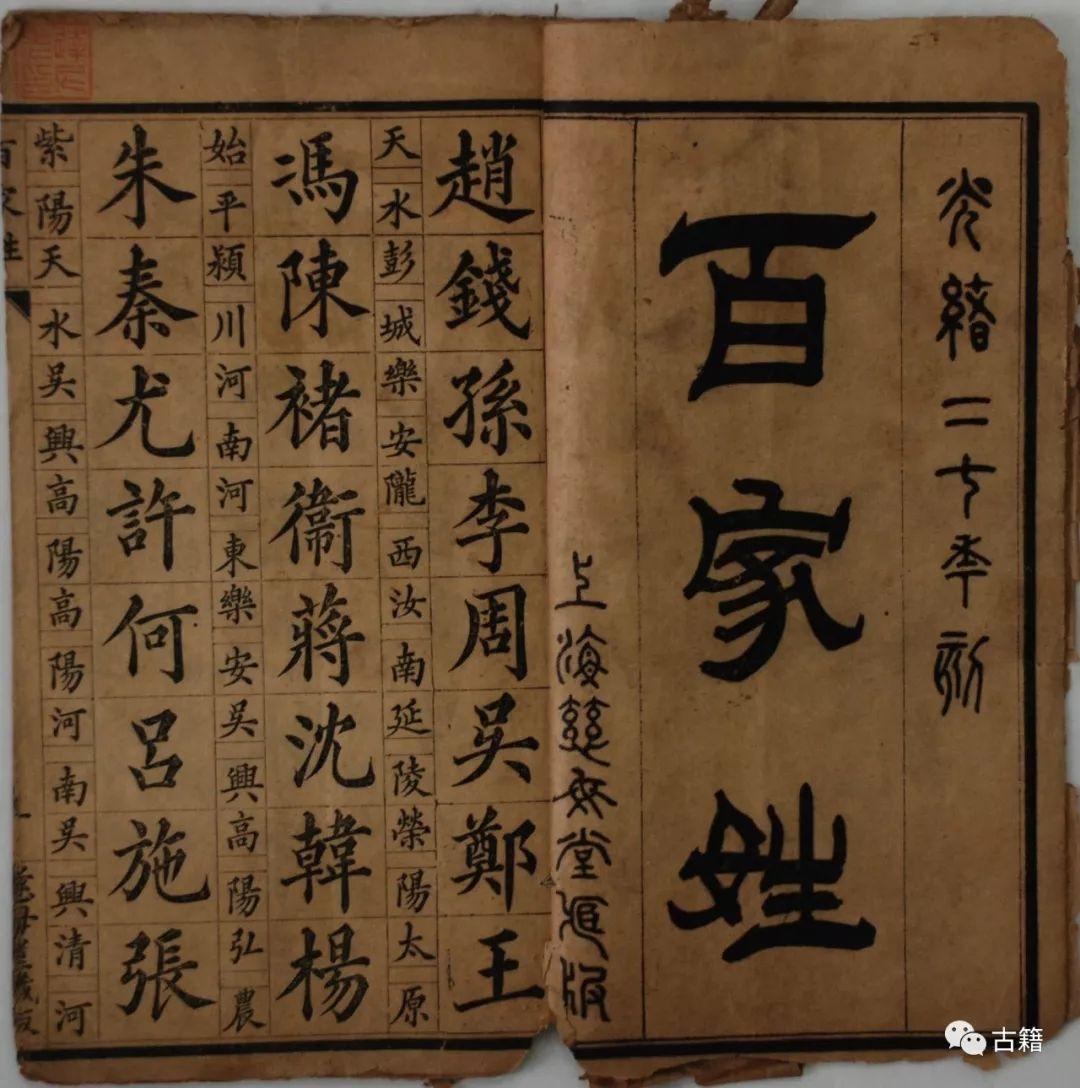 光緒二七年刻
百家姓
上海慈母堂藏版
趙錢孫李周吳鄭王
天水彭城樂安隴西汝南延陵榮陽太原
馮陳褚衞蔣沈韓楊
始平潁川河南河東樂安吳興高陽弘農
朱秦尤許何呂施張
紫陽天水吳興高陽高陽河南吳興清河
百家姓
慈母堂藏板
古籍